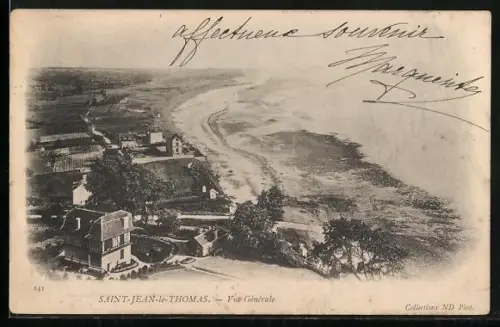 affectueux souvenir
Marguerite
241
SAINT-JEAN-le-THOMAS. — Vue Générale
Collections ND Phot.